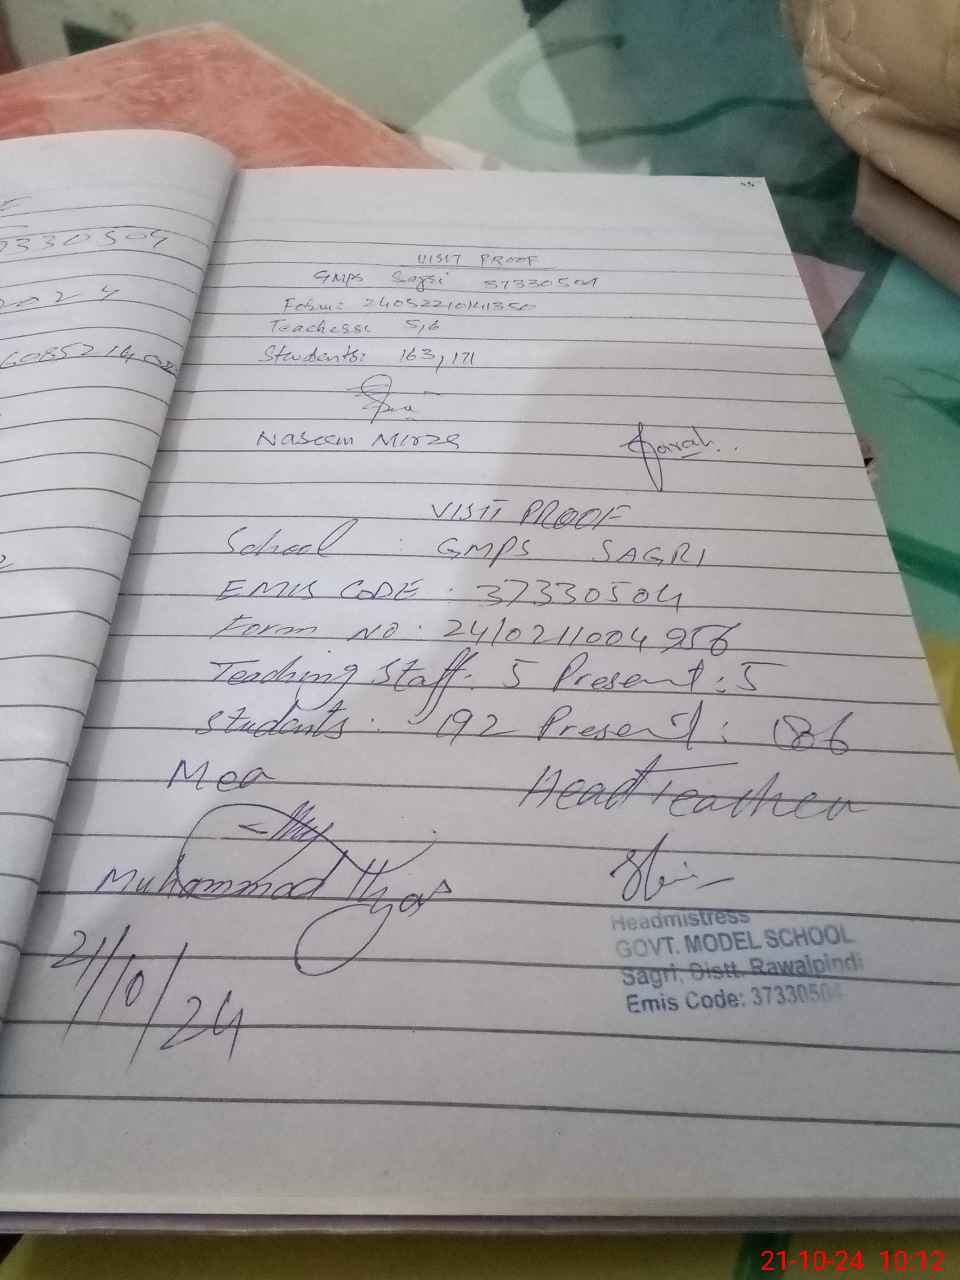 7330504
2024
VISIT PROOF
GMPS Sagri 37330504
Form: 24052210141350
Teachers: 5,6
Students: 163,171
Naseem Mirza
Farah..
VISIT PROOF
School : GMPS SAGRI
EMIS CODE : 37330504
Form NO : 2410211004956
Teaching Staff: 5 Present : 5
Students : 192 Present : 186
Mea Head Teacher
Muhammad Ilyas
21/10/24
Headmistress
GOVT. MODEL SCHOOL
Sagri, Distt. Rawalpindi
Emis Code: 37330504
21-10-24 10:12